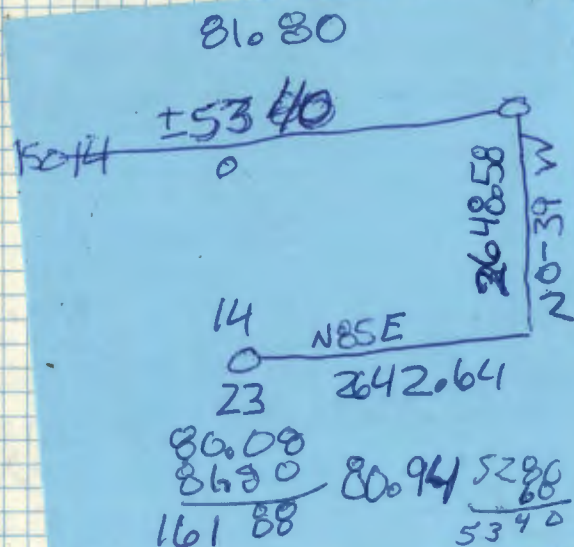 81.80
±5340
15 14
2648.58
N 0-39 W
14
N85E
23
2642.64
80.08
81.80
161 88
80.94
5280
60
5340